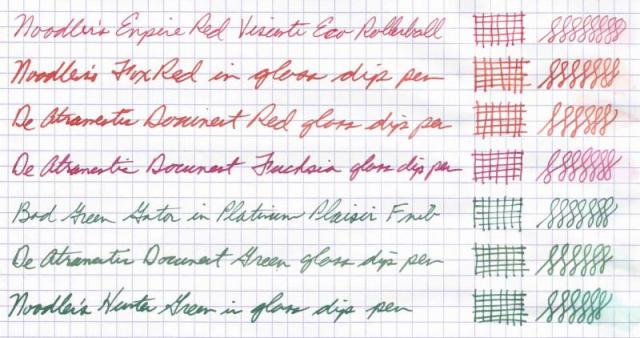 Noodler's Empire Red Visconti Eco Rollerball
Noodler's Fox Red in glass dip pen
De Atramentis Document Red glass dip pen
De Atramentis Document Fuchsia glass dip pen
Bad Green Gator in Platinum Plaisir F nib
De Atramentis Document Green glass dip pen
Noodler's Hunter Green in glass dip pen